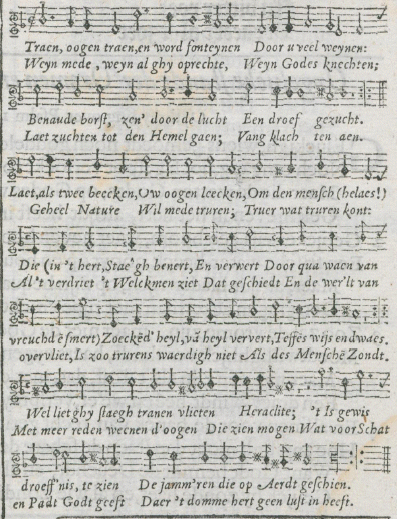 Traen, oogen traen, en word fonteynen Door u veel weynen:
Weyn mede, weyn al ghy oprechte, Weyn Godes knechten;
Benaude borst, zen' door de lucht Een droef gezucht.
Laet zuchten tot den Hemel gaen; Vang klach ten aen.
Laet, als twee beecken, Uw oogen leecken, Om den mensch (helaes!)
Geheel Nature Wil mede truren; Truer wat truren kont:
Die (in 't hert, Stae^gh benert, En verwert Door qua waen van
Al 't verdriet 't Welckmen ziet Dat geschiedt En de wer'lt van
vreuchd ē smert) Zoeckēd' heyl, vā heyl ververt, Teffēs wijs endwaes.
overvliet, Is zoo trurens waerdigh niet Als des Menschē Zondt.
Wel liet ghy staegh tranen vlieten Heraclite; 't Is gewis
Met meer reden weenen d'oogen Die zien mogen Wat voor Schat
droeff'nis, te zien De jamm'ren die op Aerdt geschien.
en Padt Godt geeft Daer 't domme hert geen lust in heeft.